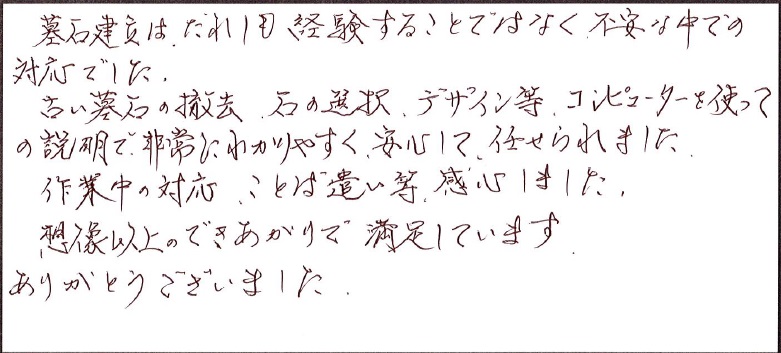 墓石建立は、だれしも経験することではなく不安な中での
対応でした。
古い墓石の撤去、石の選択、デザイン等、コンピューターを使って
の説明で非常にわかりやすく、安心して、任せられました。
作業中の対応、ことば遣い等、感心しました。
想像以上のできあがりで満足しています
ありがとうございました。